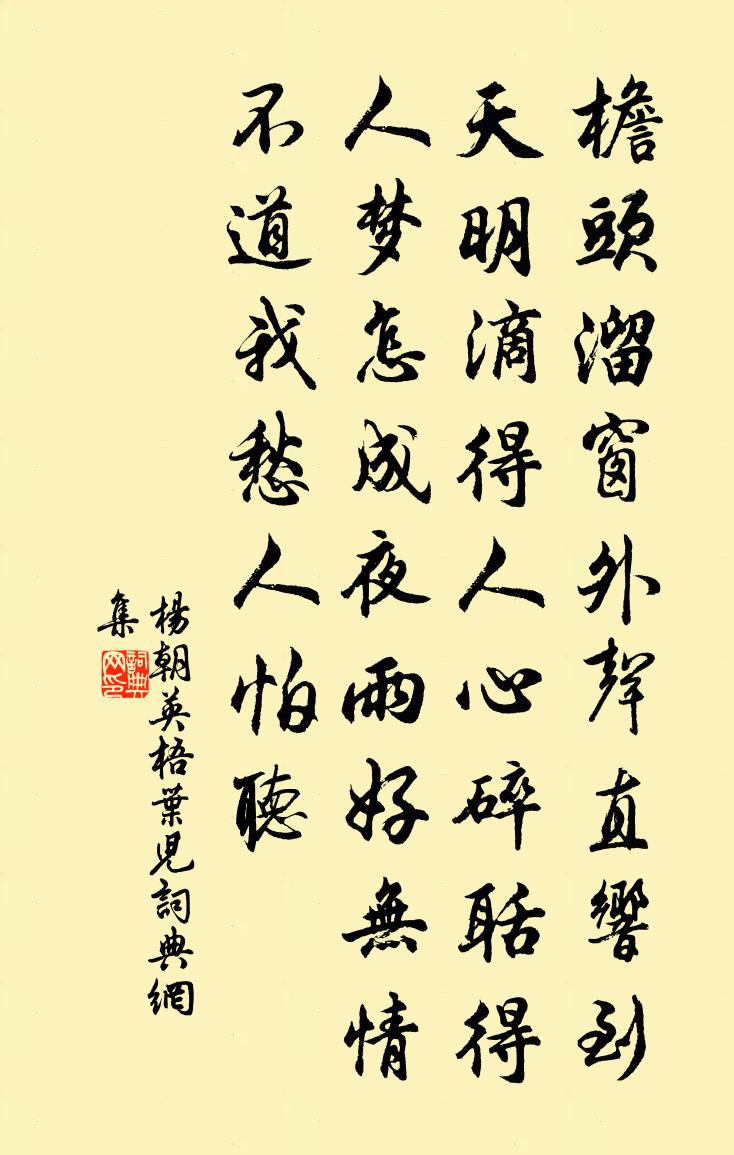 檐頭溜窗外聲直響到
天明滴得人心碎聒得
人梦怎成夜雨好無情
不道我愁人怕聽
楊朝英梧葉児詞典網
集
詞典
网印